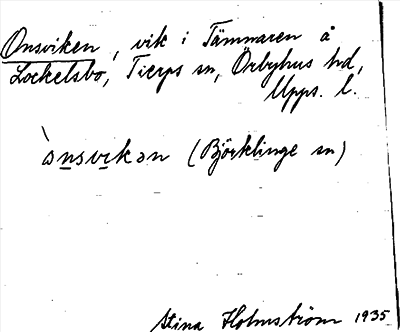 Onsviken, vik i Tämnaren å
Lockelsbo, Tierps sn, Örbyhus hd,
Upps. l.
`ɷnsvikən (Björklinge sn)
Stina Holmström 1935